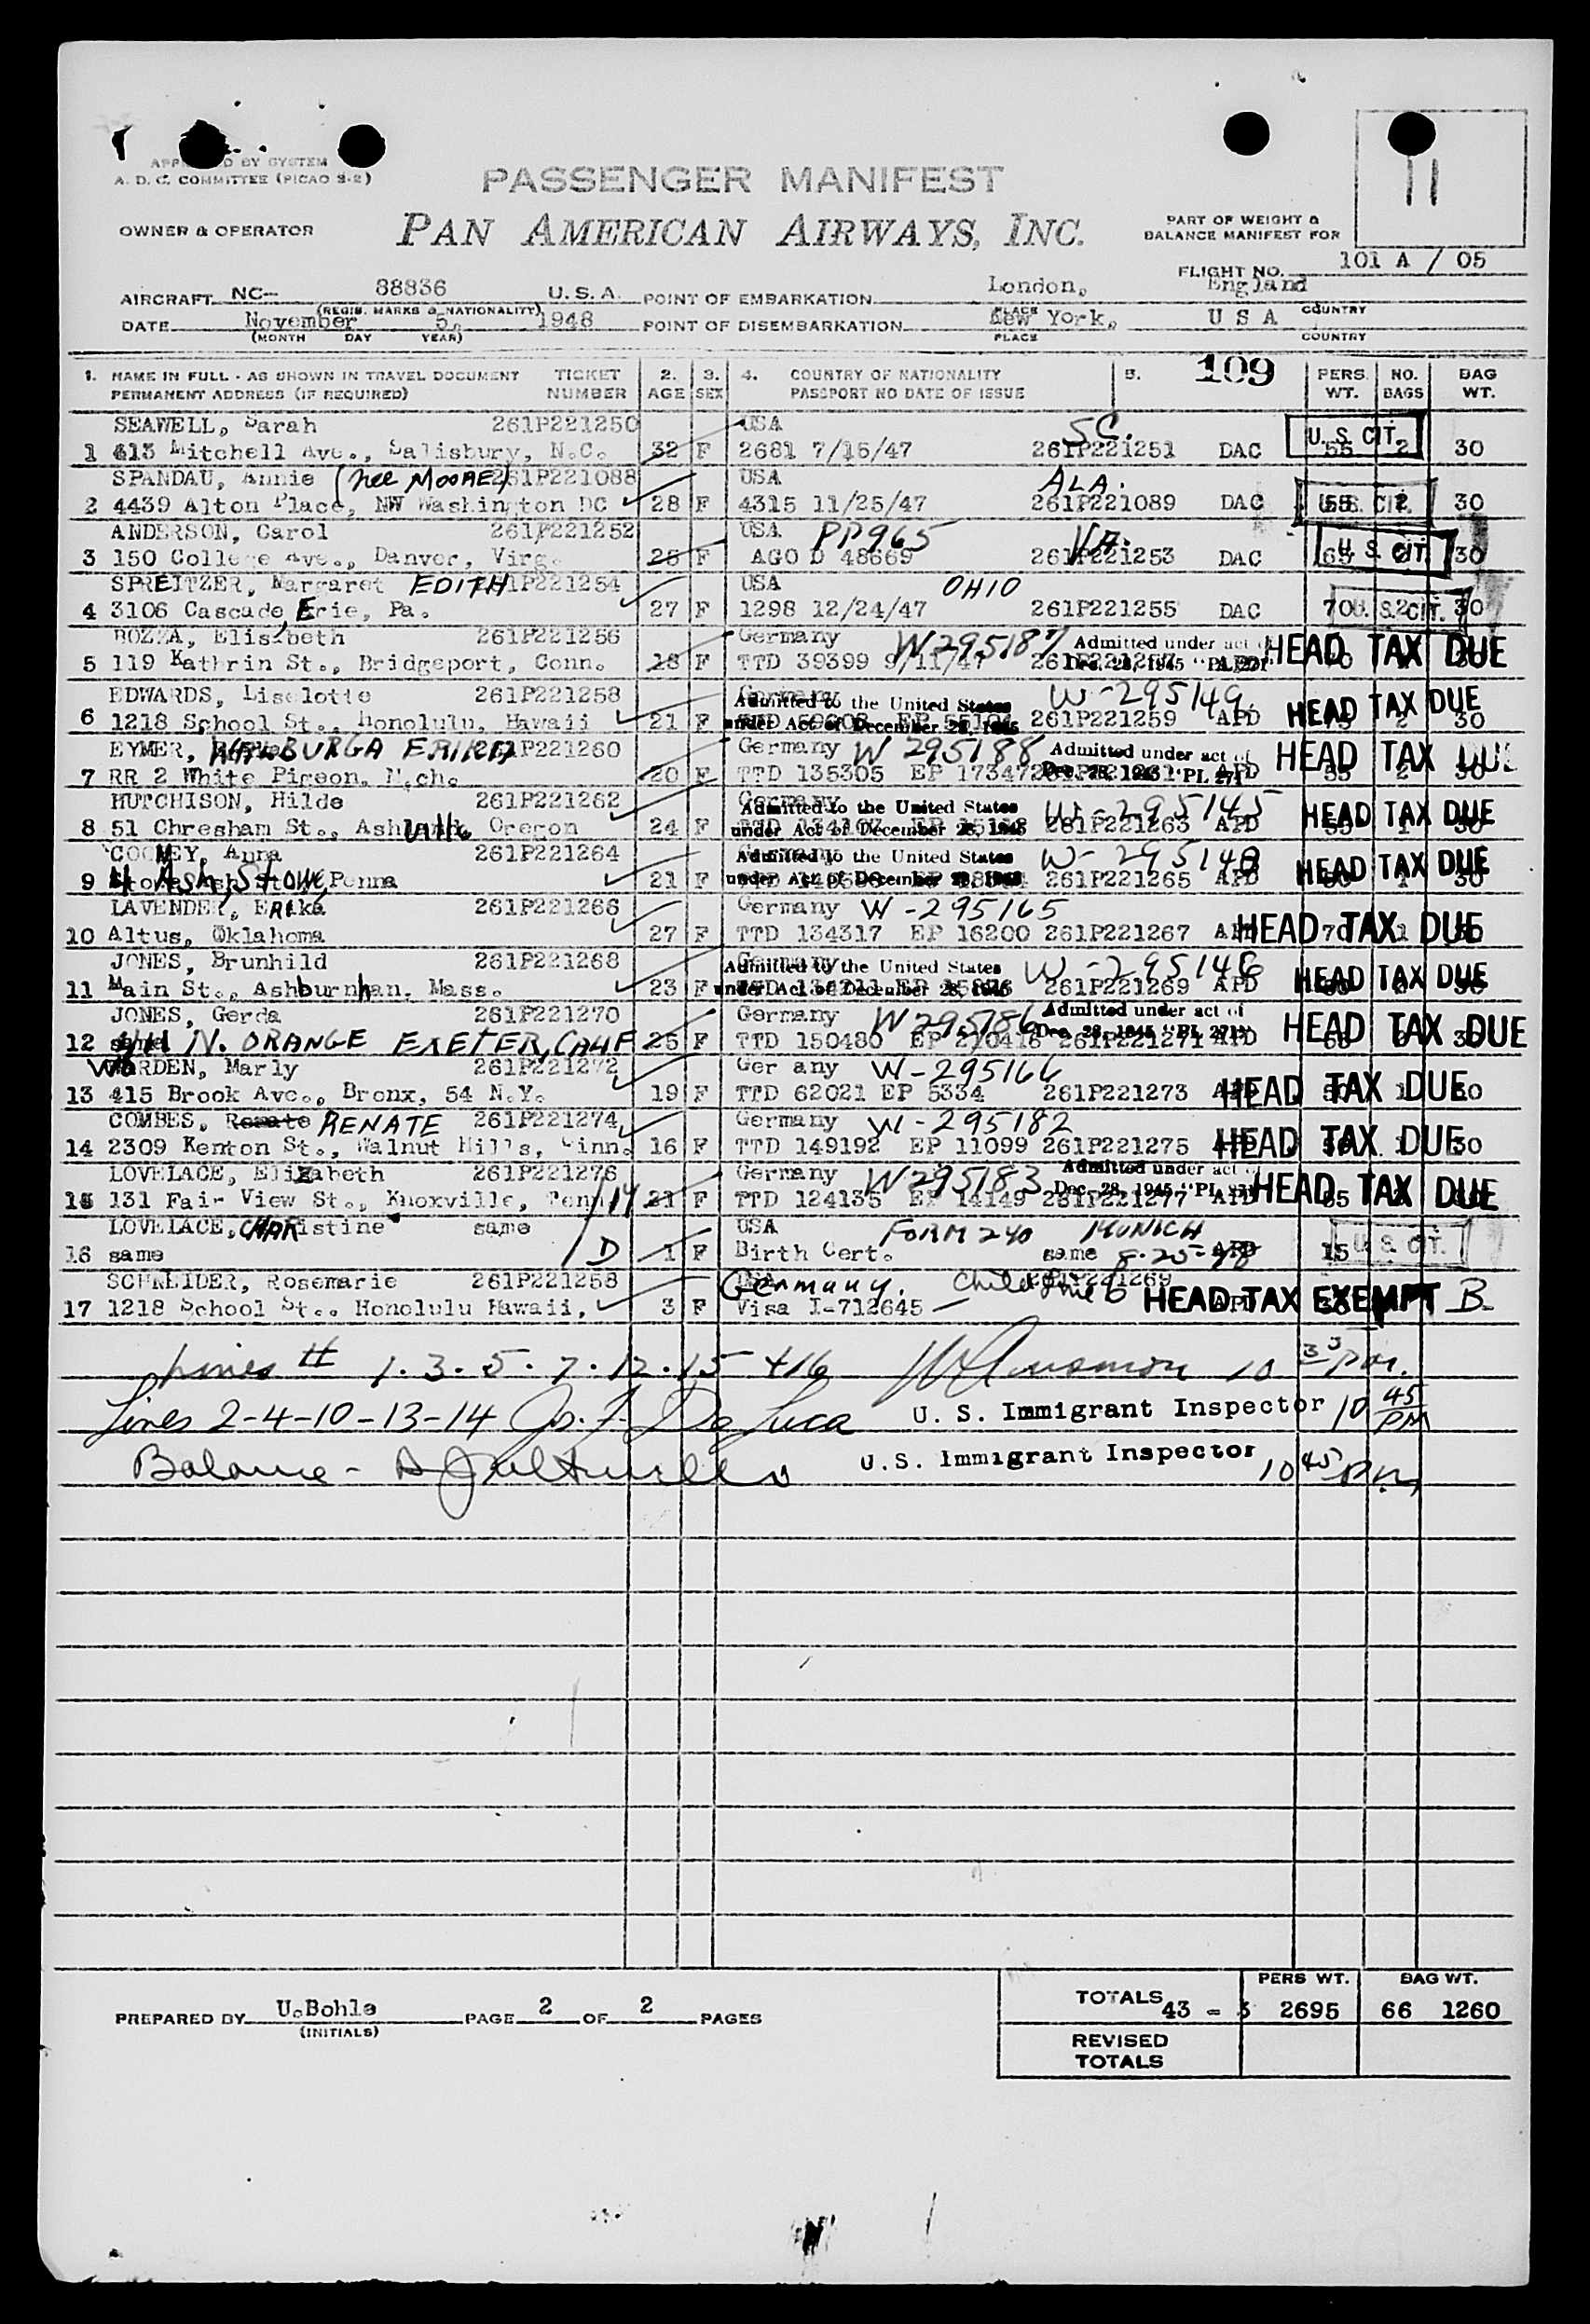 11
BY SYSTEM
A. D. C. COMMITTEE (PICAO S-2)
PASSENGER MANIFEST
OWNER & OPERATOR
PAN AMERICAN AIRWAYS, INC.
PART OF WEIGHT &
BALANCE MANIFEST FOR
FLIGHT NO. 101 A / 05
AIRCRAFT NC- 88836 U. S. A. POINT OF EMBARKATION London, England
(REGIS. MARKS & NATIONALITY) PLACE COUNTRY
DATE November 5, 1948 POINT OF DISEMBARKATION New York, U S A
(MONTH DAY YEAR) PLACE COUNTRY
1. NAME IN FULL - AS SHOWN IN TRAVEL DOCUMENT TICKET 2. 3. 4. COUNTRY OF NATIONALITY 5. 109 PERS. NO. BAG
PERMANENT ADDRESS (IF REQUIRED) NUMBER AGE SEX PASSPORT NO DATE OF ISSUE WT. BAGS WT.
SEAWELL, Sarah 261P221250 USA SC. U. S. CIT.
1 613 Mitchell Ave., Salisbury, N.C. 32 F 2681 7/15/47 261P221251 DAC 55 2 30
SPANDAU, Annie (nee MOORE) 261P221088 USA ALA.
2 4439 Alton Place, NW Washington DC 28 F 4315 11/25/47 261P221089 DAC 55 2 30 U. S. CIT.
ANDERSON, Carol 261P221252 USA PP965 VA.
3 150 College Ave., Danver, Virg. 26 F AGO D 48669 261P221253 DAC U. S. CIT. 30
SPREITZER, Margaret EDITH 261P221254 USA OHIO
4 3106 Cascade, Erie, Pa. 27 F 1298 12/24/47 261P221255 DAC 70 2 30 U. S. CIT.
BOZZA, Elisabeth 261P221256 Germany W295187 Admitted under act of
5 119 Kathrin St., Bridgeport, Conn. 18 F TTD 39399 9/11/47 Dec. 28, 1945 "PL 271" HEAD TAX DUE
EDWARDS, Liselotte 261P221258 Germany Admitted to the United States W-295149
6 1218 School St., Honolulu, Hawaii 21 F under Act of December 28, 1945 261P221259 APD HEAD TAX DUE 2 30
EYMER, WALBURGA ERIKA 261P221260 Germany W 295188 Admitted under act of
7 RR 2 White Pigeon, Mich. 20 F TTD 135305 EP 17347 Dec. 28, 1945 "PL 271" HEAD TAX DUE
HUTCHISON, Hilde 261P221262 Germany Admitted to the United States W-295145
8 51 Chresham St., Ashville Oregon 24 F under Act of December 28, 1945 261P221263 APD HEAD TAX DUE
COOMEY, Anna 261P221264 Germany Admitted to the United States W-295148
9 4 Ash, Stowe, Penna 21 F under Act of December 28, 1945 261P221265 APD HEAD TAX DUE
LAVENDER, Erika 261P221266 Germany W-295165
10 Altus, Oklahoma 27 F TTD 134317 EP 16200 261P221267 HEAD TAX DUE
JONES, Brunhild 261P221268 Germany Admitted to the United States W-295146
11 Main St., Ashburnham, Mass. 23 F under Act of December 28, 1945 261P221269 APD HEAD TAX DUE
JONES, Gerda 261P221270 Germany W295186 Admitted under act of
12 same 411 N. ORANGE EXETER, CALIF 25 F TTD 150480 EP 270418 261P221271 APD Dec. 28, 1945 "PL 271" HEAD TAX DUE
WARDEN, Marly 261P221272 Ger any W-295166
13 415 Brook Ave., Bronx, 54 N.Y. 19 F TTD 62021 EP 5334 261P221273 APD HEAD TAX DUE
COMBES, Renate RENATE 261P221274 Germany W-295182
14 2309 Kenton St., Walnut Hills, Cinn. 16 F TTD 149192 EP 11099 261P221275 APD HEAD TAX DUE
LOVELACE, Elizabeth 261P221276 Germany W295183 Admitted under act of
15 131 Fair View St., Knoxville, Tenn 21 F TTD 124135 EP 14149 261P221277 APD Dec. 28, 1945 "PL 271" HEAD TAX DUE
LOVELACE, CHARistine same USA FORM 240 MUNICH
16 same D 1 F Birth Cert. same 8-25-48 APD 15 U. S. CIT.
SCHNEIDER, Rosemarie 261P221258 USA Germany. 261P221269
17 1218 School St., Honolulu Hawaii, 3 F Visa I-712645 APD HEAD TAX EXEMPT B.
Lines # 1. 3. 5. 7. 12. 15 + 16 10 33 p.m.
Lines 2-4-10-13-14 Jos. F. De Luca U. S. Immigrant Inspector 10 45 PM
Balance - U. S. Immigrant Inspector 10 45 p.m.
PERS WT. BAG WT.
TOTALS 43 - 3 2695 66 1260
PREPARED BY U.Bohle PAGE 2 OF 2 PAGES
(INITIALS)
REVISED
TOTALS